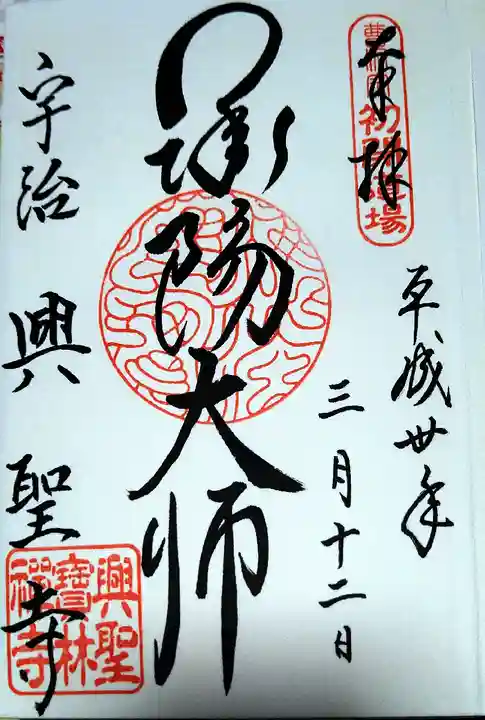 奉拝
曹洞宗初開道場
平成卅年
三月十二日
承陽大師
宇治 興聖寺
興聖
寶林
禪寺